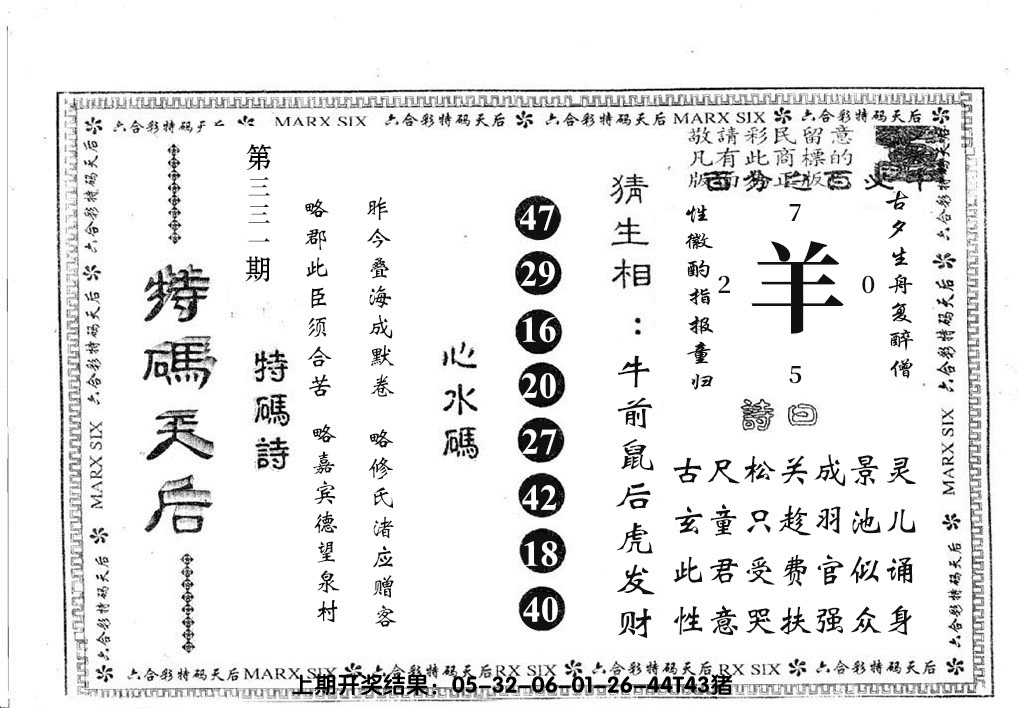 六合彩特码天后 MARX SIX 六合彩特码天后 六合彩特码天后 MARX SIX 六合彩特码天后
敬請彩民留意
凡有此商標的
古夕生舟复醉僧
7
2 羊 0
5
性徽酌指报童归
詩曰
古尺松关成景灵
玄童只趁羽池儿
此君受费官似诵
性意哭扶强众身
猜生相：牛前鼠后虎发财
47
29
16
20
27
42
18
40
心水碼
昨今叠海成默卷 略修氏渚应赠客
略郡此臣须合苦 略嘉宾德望泉村
特碼詩
第三三一期
特碼天后
六合彩特码天后 六合彩特码天后 MARX SIX 六合彩特码天后
六合彩特码天后 六合彩特码天后 MARX SIX 六合彩特码天后
六合彩特码天后 MARX SIX 六合彩特码天后 RX SIX 六合彩特码天后 RX SIX 六合彩特码天后
上期开奖结果：05-32-06-01-26-44T43猪